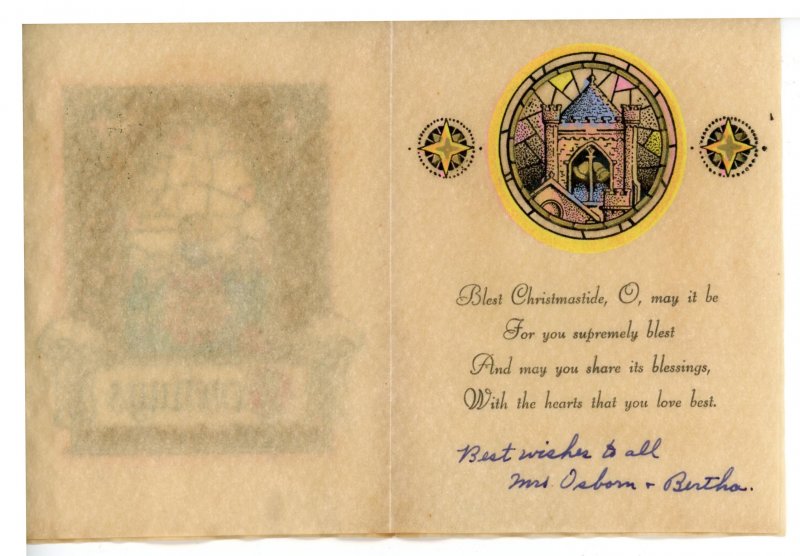 Blest Christmastide, O, may it be
For you supremely blest
And may you share its blessings,
With the hearts that you love best.
Best wishes to all
Mrs Osborn + Bertha.